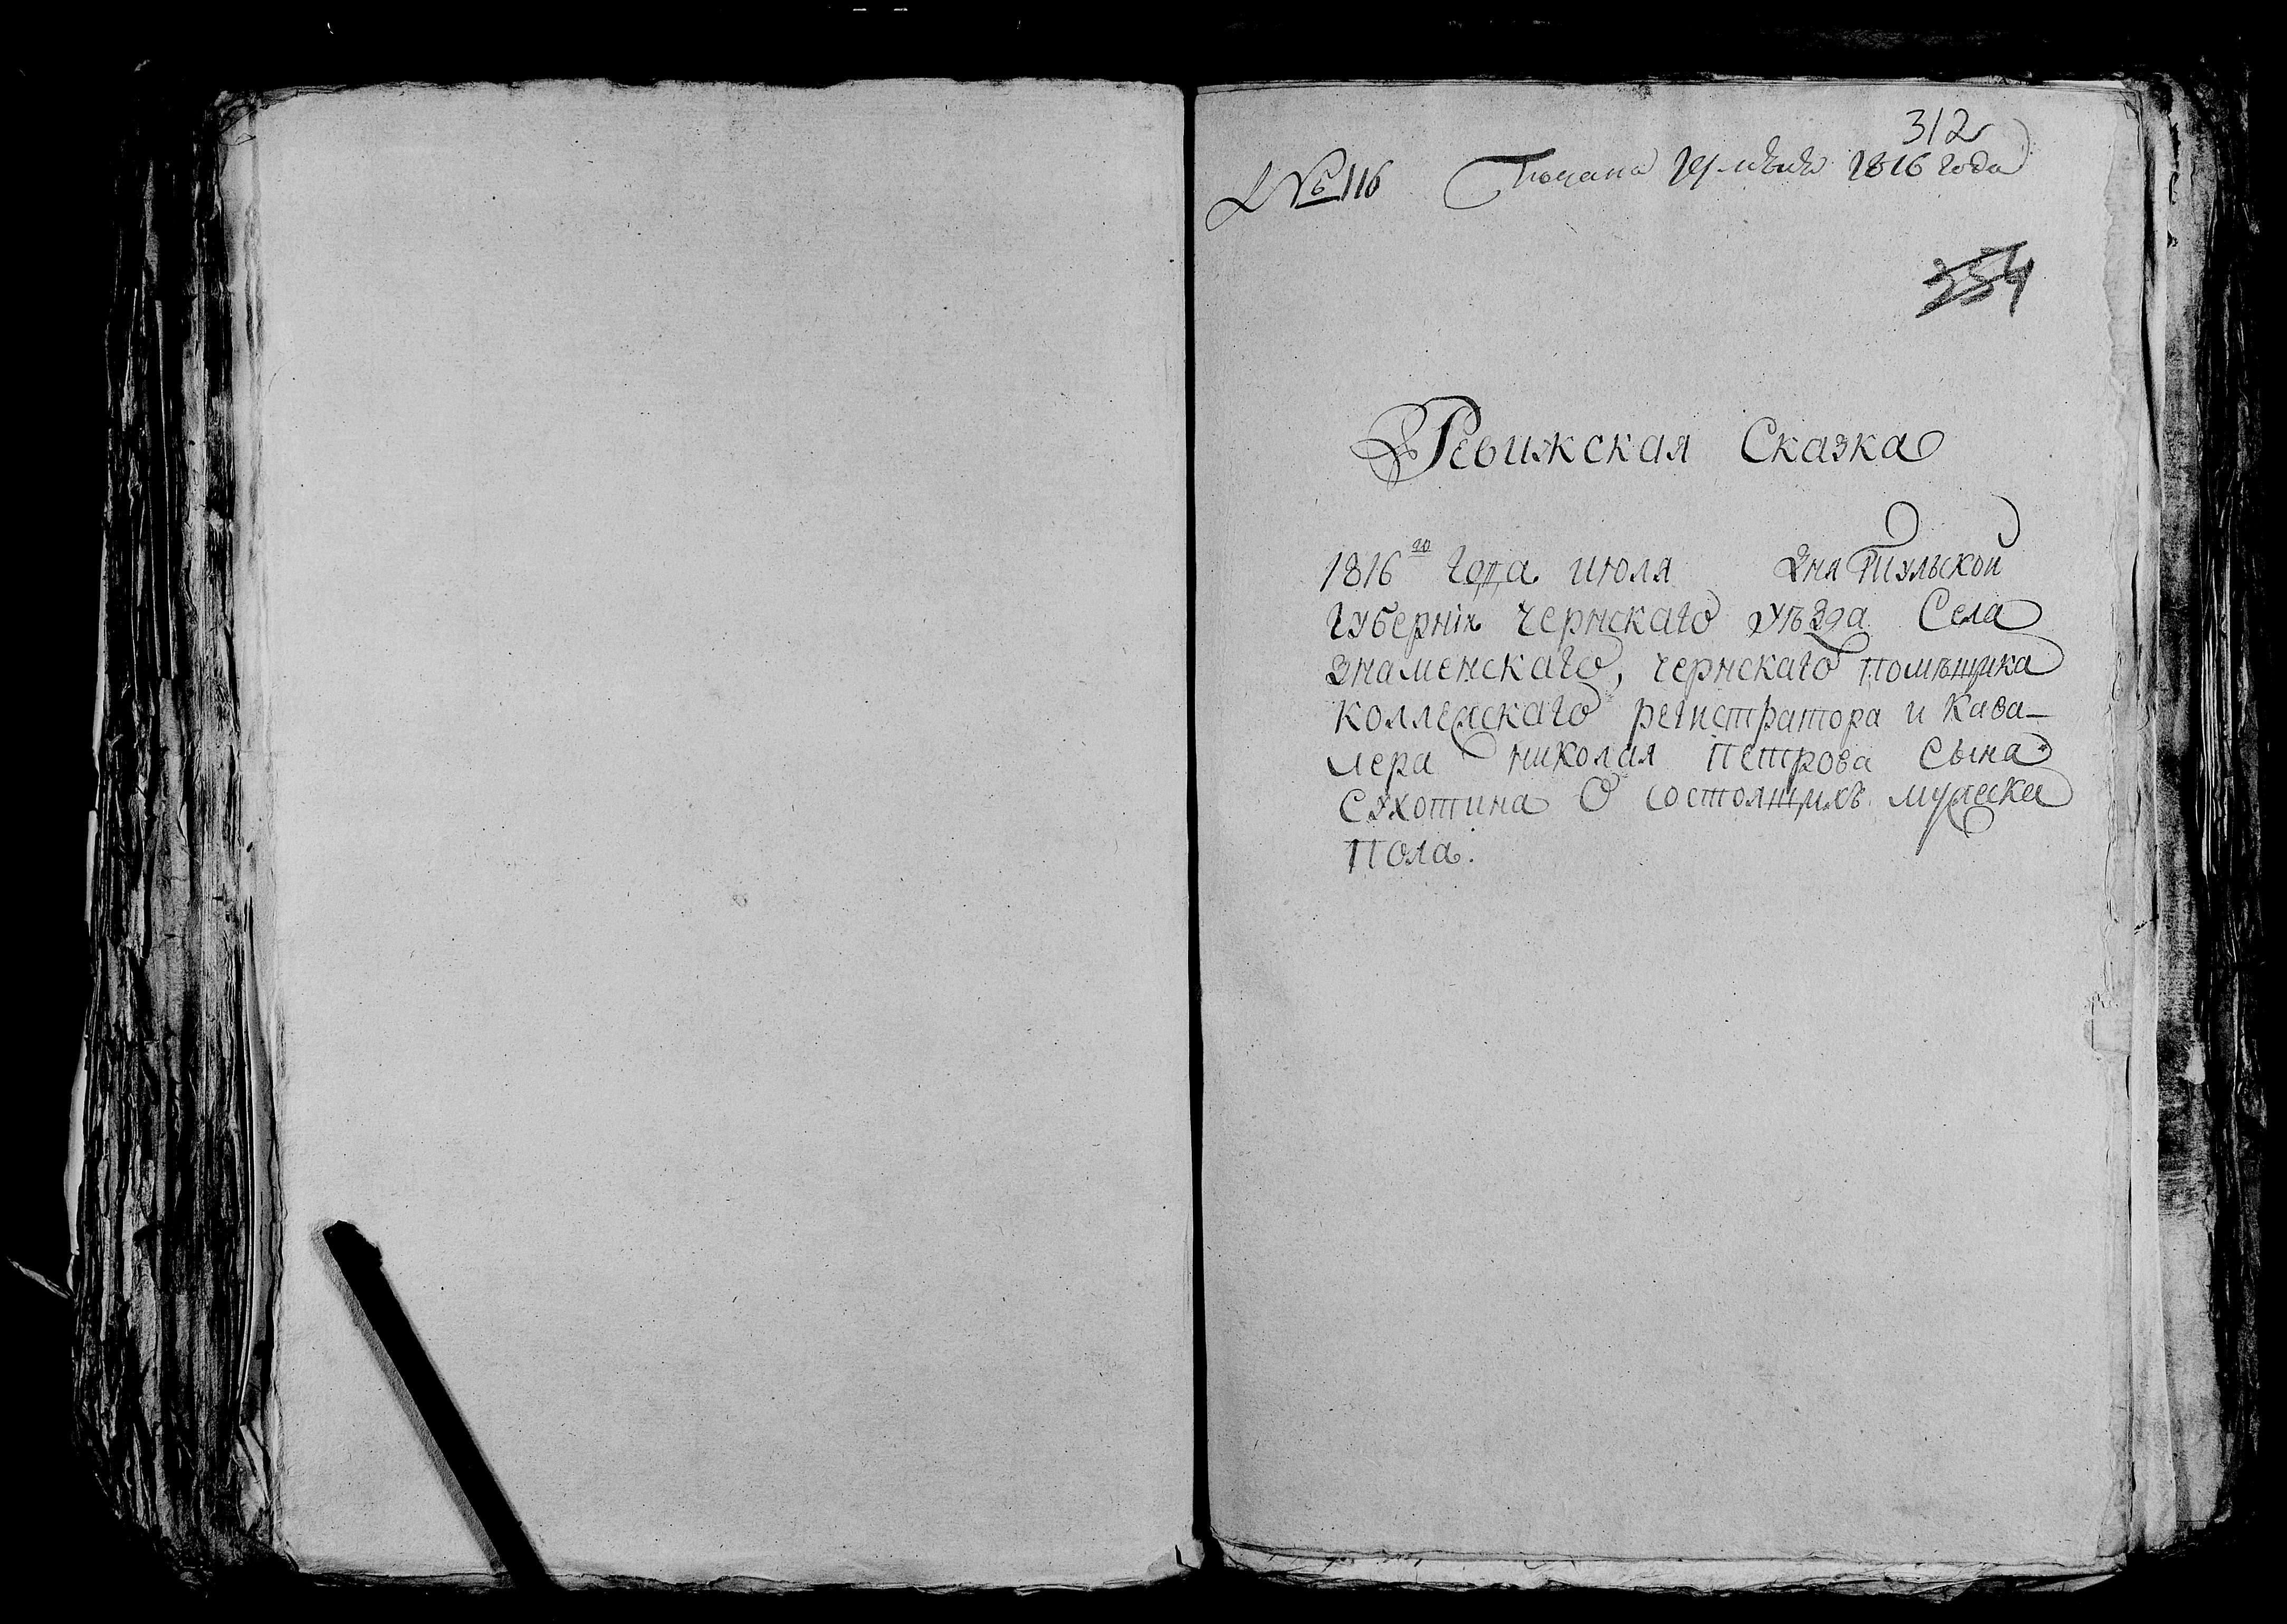 312
№ 116 Подана 1816 года
354
Ревижская Сказка
1816го Года июля дня Тульской
Губерніи чернскаго уѣзда Села
знаменскаго, чернскаго помѣщика
коллежскаго регистратора и Кава-
лера николая Петрова сына
Сухотина О состоящихъ мужеска
Пола.